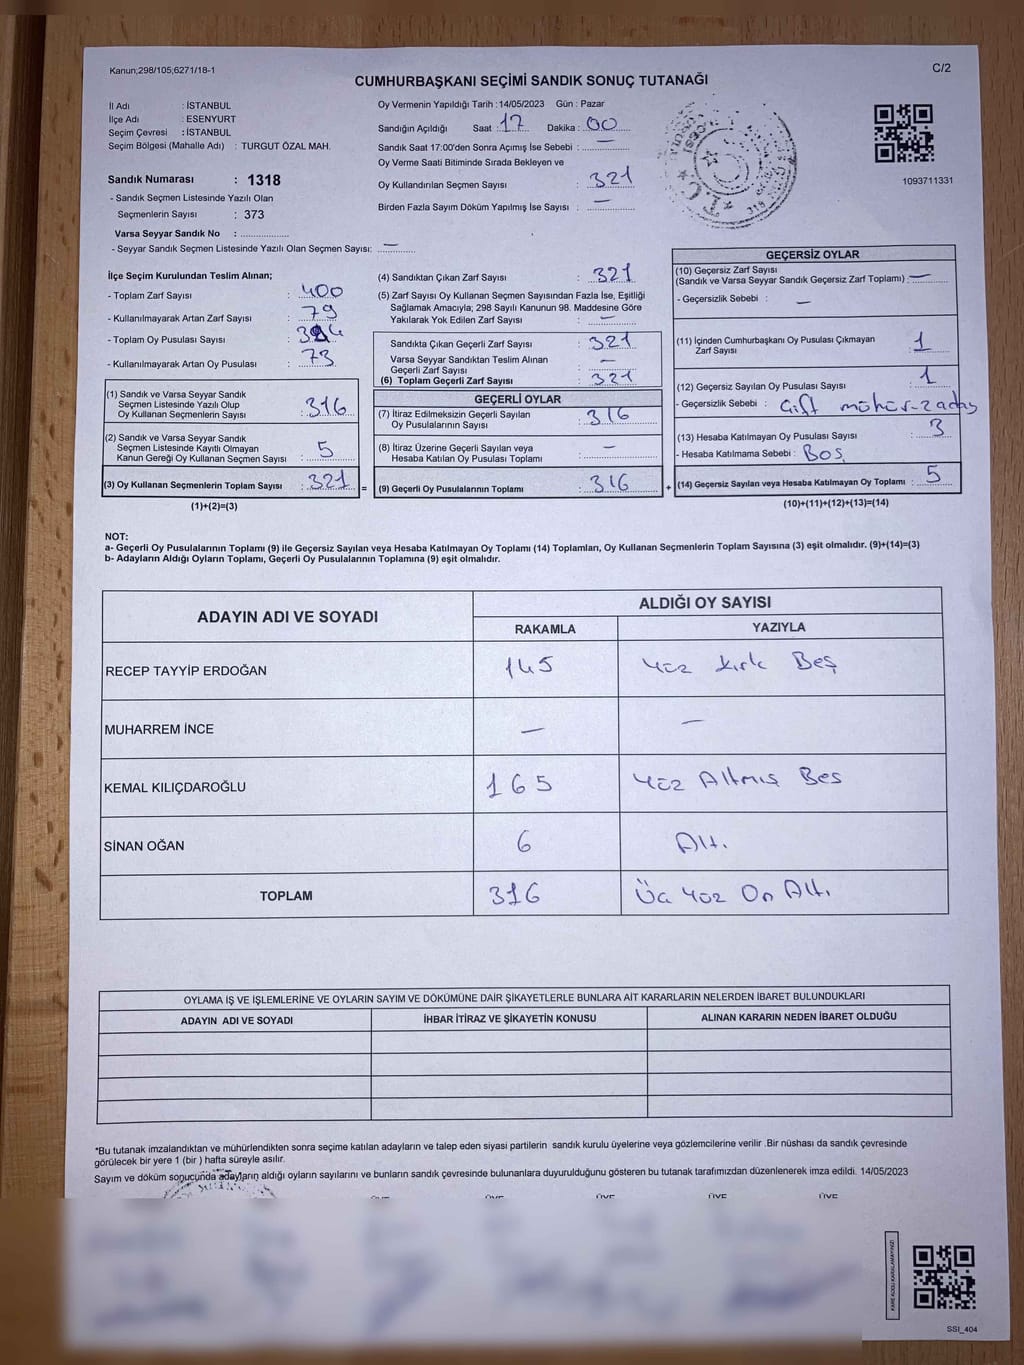 Kanun;298/105;6271/18-1
C/2
CUMHURBAŞKANI SEÇİMİ SANDIK SONUÇ TUTANAĞI
İl Adı : İSTANBUL
İlçe Adı : ESENYURT
Seçim Çevresi : İSTANBUL
Seçim Bölgesi (Mahalle Adı) : TURGUT ÖZAL MAH.
Sandık Numarası : 1318
- Sandık Seçmen Listesinde Yazılı Olan
Seçmenlerin Sayısı : 373
Varsa Seyyar Sandık No :
- Seyyar Sandık Seçmen Listesinde Yazılı Olan Seçmen Sayısı: —
Oy Vermenin Yapıldığı Tarih : 14/05/2023 Gün : Pazar
Sandığın Açıldığı Saat : 17 Dakika : 00
Sandık Saat 17:00'den Sonra Açımış İse Sebebi : —
Oy Verme Saati Bitiminde Sırada Bekleyen ve
Oy Kullandırılan Seçmen Sayısı : 321
Birden Fazla Sayım Döküm Yapılmış İse Sayısı : —
1093711331
İlçe Seçim Kurulundan Teslim Alınan;
- Toplam Zarf Sayısı : 400
- Kullanılmayarak Artan Zarf Sayısı : 79
- Toplam Oy Pusulası Sayısı :
- Kullanılmayarak Artan Oy Pusulası : 73
(1) Sandık ve Varsa Seyyar Sandık
Seçmen Listesinde Yazılı Olup
Oy Kullanan Seçmenlerin Sayısı : 316
(2) Sandık ve Varsa Seyyar Sandık
Seçmen Listesinde Kayıtlı Olmayan
Kanun Gereği Oy Kullanan Seçmen Sayısı : 5
(3) Oy Kullanan Seçmenlerin Toplam Sayısı : 321 =
(1)+(2)=(3)
(4) Sandıktan Çıkan Zarf Sayısı : 321
(5) Zarf Sayısı Oy Kullanan Seçmen Sayısından Fazla İse, Eşitliği
Sağlamak Amacıyla; 298 Sayılı Kanunun 98. Maddesine Göre
Yakılarak Yok Edilen Zarf Sayısı : —
Sandıkta Çıkan Geçerli Zarf Sayısı : 321
Varsa Seyyar Sandıktan Teslim Alınan
Geçerli Zarf Sayısı : —
(6) Toplam Geçerli Zarf Sayısı : 321
GEÇERLİ OYLAR
(7) İtiraz Edilmeksizin Geçerli Sayılan
Oy Pusulalarının Sayısı : 316
(8) İtiraz Üzerine Geçerli Sayılan veya
Hesaba Katılan Oy Pusulası Toplamı : —
(9) Geçerli Oy Pusulalarının Toplamı : 316 +
GEÇERSİZ OYLAR
(10) Geçersiz Zarf Sayısı
(Sandık ve Varsa Seyyar Sandık Geçersiz Zarf Toplamı) : —
- Geçersizlik Sebebi : —
(11) İçinden Cumhurbaşkanı Oy Pusulası Çıkmayan
Zarf Sayısı : 1
(12) Geçersiz Sayılan Oy Pusulası Sayısı : 1
- Geçersizlik Sebebi : Çift mühür-
(13) Hesaba Katılmayan Oy Pusulası Sayısı : 3
- Hesaba Katılmama Sebebi : BOŞ
(14) Geçersiz Sayılan veya Hesaba Katılmayan Oy Toplamı : 5
(10)+(11)+(12)+(13)=(14)
NOT:
a- Geçerli Oy Pusulalarının Toplamı (9) ile Geçersiz Sayılan veya Hesaba Katılmayan Oy Toplamı (14) Toplamları, Oy Kullanan Seçmenlerin Toplam Sayısına (3) eşit olmalıdır. (9)+(14)=(3)
b- Adayların Aldığı Oyların Toplamı, Geçerli Oy Pusulalarının Toplamına (9) eşit olmalıdır.
ADAYIN ADI VE SOYADI
ALDIĞI OY SAYISI
RAKAMLA YAZIYLA
RECEP TAYYİP ERDOĞAN 145 Yüz Kırk Beş
MUHARREM İNCE — —
KEMAL KILIÇDAROĞLU 165 Yüz Altmış Beş
SİNAN OĞAN 6 Altı
TOPLAM 316 Üç Yüz On Altı
OYLAMA İŞ VE İŞLEMLERİNE VE OYLARIN SAYIM VE DÖKÜMÜNE DAİR ŞİKAYETLERLE BUNLARA AİT KARARLARIN NELERDEN İBARET BULUNDUKLARI
ADAYIN ADI VE SOYADI İHBAR İTİRAZ VE ŞİKAYETİN KONUSU ALINAN KARARIN NEDEN İBARET OLDUĞU
*Bu tutanak imzalandıktan ve mühürlendikten sonra seçime katılan adayların ve talep eden siyasi partilerin sandık kurulu üyelerine veya gözlemcilerine verilir .Bir nüshası da sandık çevresinde
görülecek bir yere 1 (bir ) hafta süreyle asılır.
Sayım ve döküm sonucunda adayların aldığı oyların sayılarını ve bunların sandık çevresinde bulunanlara duyurulduğunu gösteren bu tutanak tarafımızdan düzenlenerek imza edildi. 14/05/2023
ÜYE ÜYE ÜYE ÜYE
SSI_404